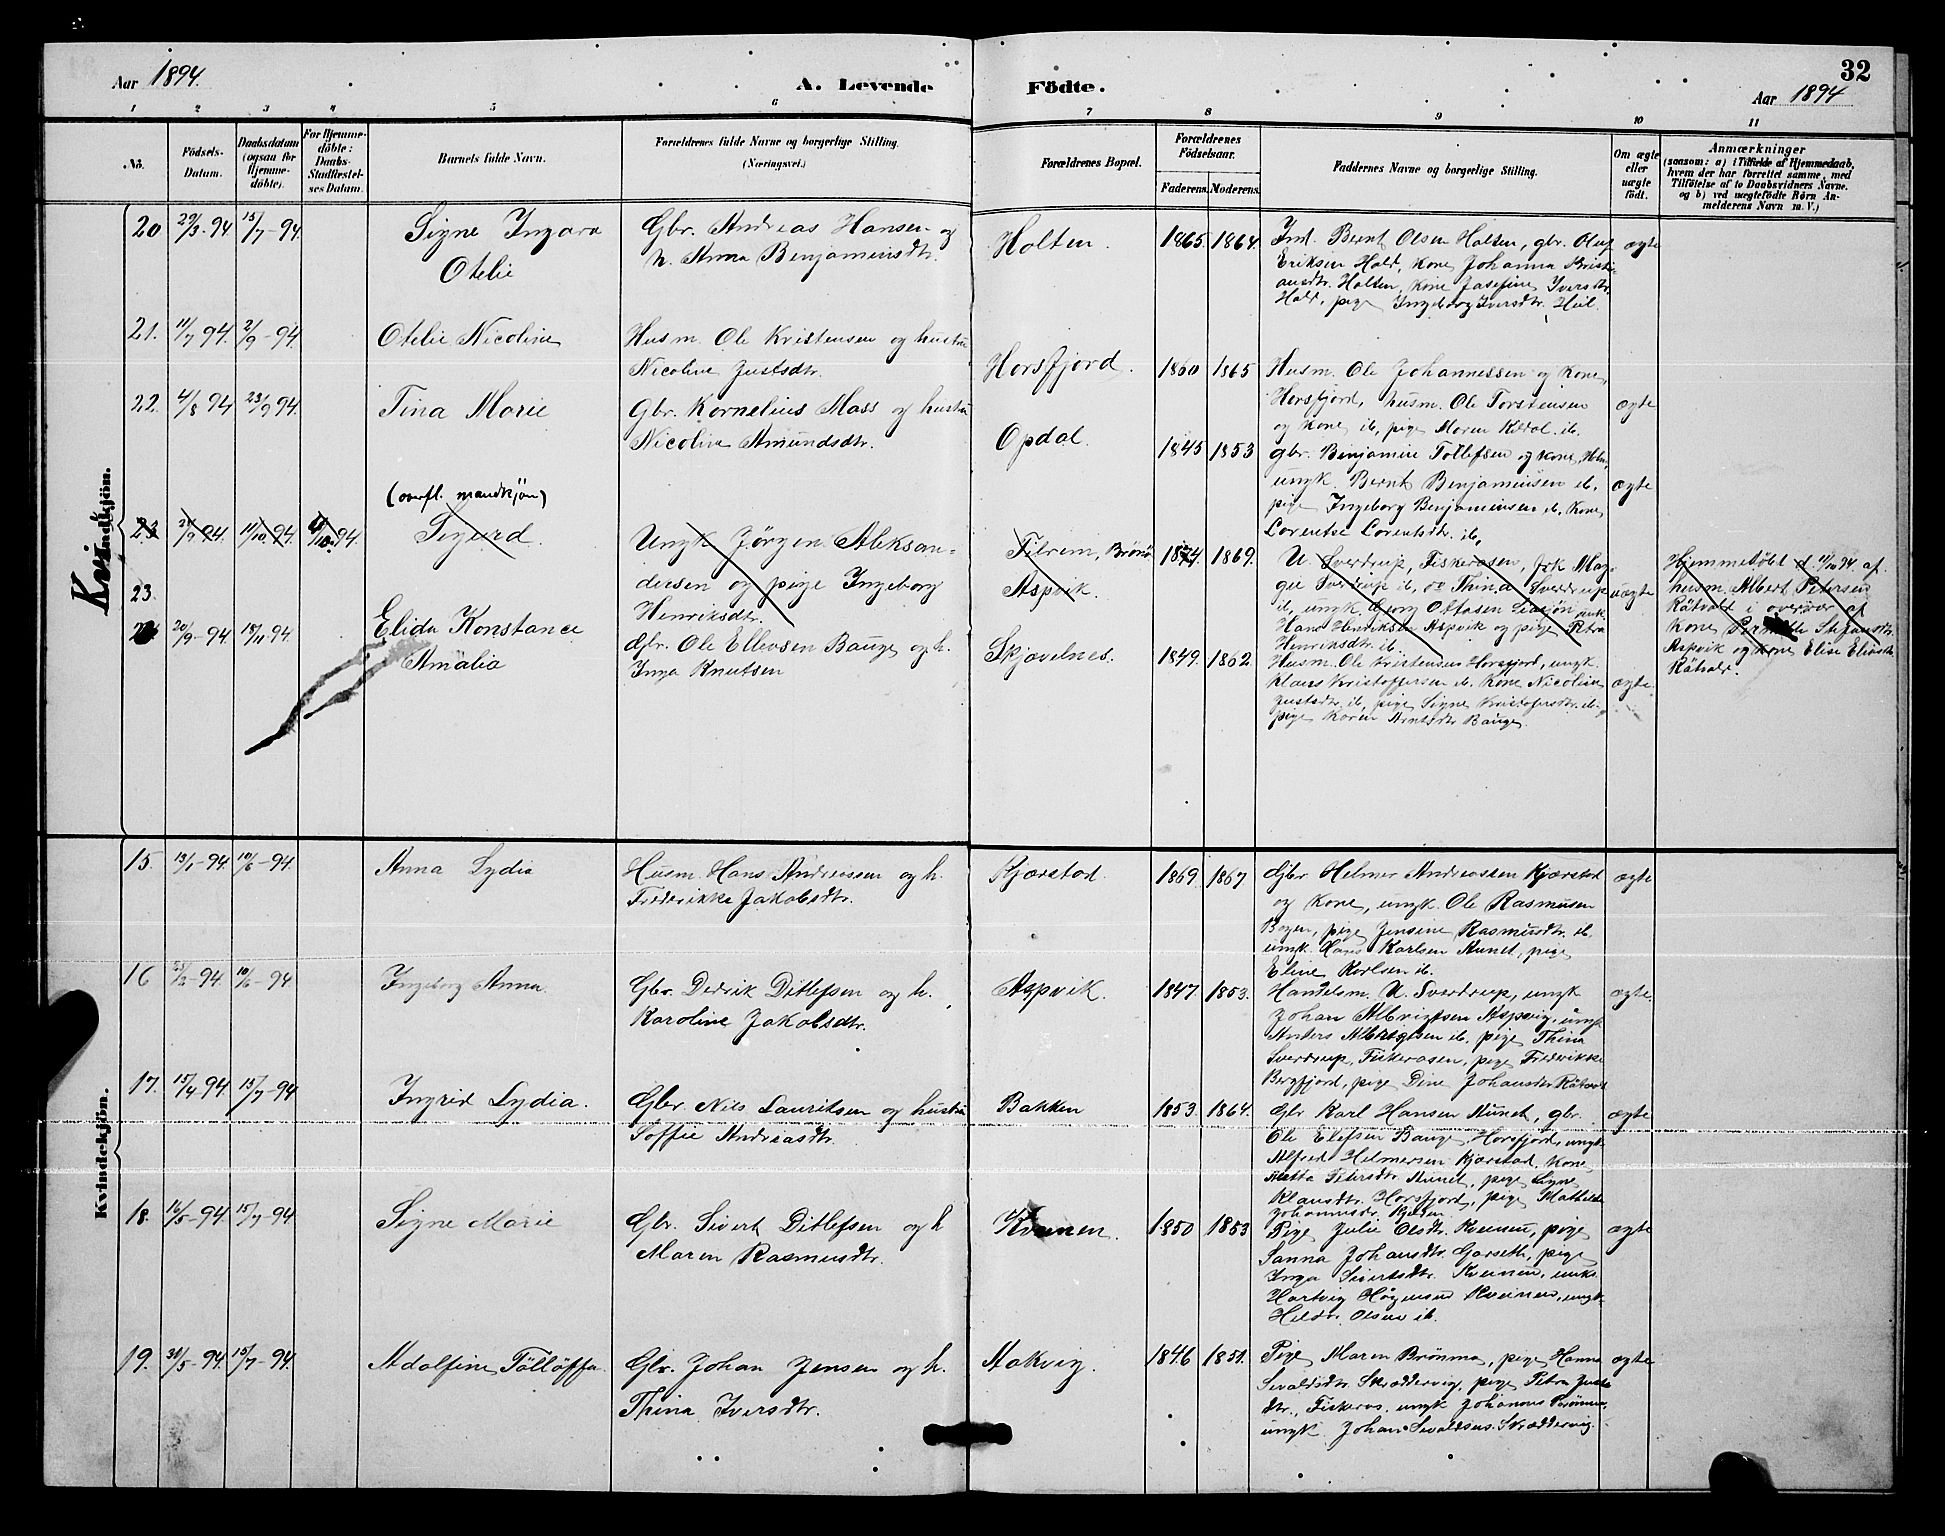 Aar 1894.
A. Levende Födte.
32
Aar 1894
1 2 3 4 5 6 7 8 9 10 11
No.
Födsels-
Datum.
Daabsdatum
(ogsaa for
Hjemme-
döbte).
For Hjemme-
döbte:
Daabs-
Stadfæstel-
ses Datum.
Barnets fulde Navn.
Forældrenes fulde Navne og borgerlige Stilling.
(Næringsvei.)
Forældrenes Bopæl.
Forældrenes
Födselsaar.
Faderens. Moderens.
Faddernes Navne og borgerlige Stilling.
Om ægte
eller
uægte
födt.
Anmærkninger
(saasom: a) i Tilfælde af Hjemmedaab,
hvem der har forrettet samme, med
Tilföielse af to Daabsvidners Navne.
og b) ved uægtefödte Börn An-
melderens Navn m. V.)
Kvindkjön.
20 29/3-94 15/7-94.
Signe Ingara
Otelie
Gbr. Andreas Hansen og
h. Anna Benjaminsdtr.
Holten.
1865 1864.
Ind. Bernt Olsen Holten, gbr. Oluf
Eriksen Hald, kone Johanna Kristi-
ansdtr. Holten, kone Josefine Iversdtr.
Hald, pige Ingeborg Iversdtr. Heil.
ægte
21. 11/7 94. 2/9-94.
Otelie Nicoline
Husm. Ole Kristensen og hustru
Nicoline Justsdtr.
Horsfjord.
1860 1865
Husm. Ole Johannessen og kone,
Horsfjord, husm. Ole Torstensen
og kone ib, pige Maren ib.
ægte
22. 4/8 94 23/9 94.
Tina Marie
Gbr. Kornelius Mass og hustru
Nicoline Amundsdtr.
Opdal.
1845 1853
gbr. Benjamin Tollefsen og kone,
ungk. Bernt Benjaminsen ib,
pige Ingeborg Benjaminsen ib. kone
Lorentse Lorentsdtr. ib.
ægte
(overfl. mandkjøn)
23 94. 11/10 94. 94.
Sigurd.
Ungk Jörgen Aleksan-
dersen og pige Ingeborg
Henriksdtr.
Tilrem, Brönö
Aspvik.
1874 1869.
U. Sverdrup, Fiskerosen, frk Mag-
ge Sverdrup ib, Thina Sverdrup
ib, ungk Georg Ottosen
Hans Henriksen Aspvik og pige Petra
Henriksdtr. ib.
uægte
Hjemmedøbt d. 11/10 94 af
husm. Albert Petersen
Råtvold i overvær af
kone Pernille Stefansdtr.
Aspvik og kone Elise Eliasdtr.
Råtvold.
23.
20/9-94 18/11 94.
Elida Konstance
Amalia
Gbr. Ole Ellevsen Bauge og h.
Inga Knutsen
Skjavelnes.
1849. 1862
Husm. Ole Kristensen Horsfjord, ungk.
Klaus Kristoffersen ib. kone Nicoline
Justsdtr. ib, pige Signe Kristofersdtr. ib.
pige Karen Arntsdtr Bauge
ægte.
Kvindekjön.
15. 13/1-94 10/6-94
Anna Lydia
Husm. Hans Andreassen og h.
Frederikke Jakobsdtr.
Kjærstad.
1869 1867
Gbr Helmer Andreassen Kjærstad
og kone, ungk. Ole Rasmusen
Bogen, pige Jensine Rasmusdtr. ib.
ungk. Hans Karlsen Aunet, pige
Eline Karlsen ib.
ægte
16 23/2-94. 10/6-94
Ingeborg Anna
Gbr. Dedrik Ditlefsen og h.
Karoline Jakobsdtr.
Aspvik.
1847 1853.
Handelsm. U. Sverdrup, ungk
Johan Albrigtsen Aspvig, ungk
Anders Albrigtsen ib. pige Thina
Sverdrup, Fiskerosen, pige Frederikke
Bergfjord, pige Dine Johansdtr Råtvold
ægte.
17. 15/4-94. 15/7-94
Ingrid Lydia.
Gbr. Nils Lauritsen og hustru
Soffie Andreasdtr.
Bakken
1853. 1864.
Gbr Karl Hansen Aunet, gbr.
Ole Elefsen Bauge, Horsfjord, ungk
Alfred Helmersen Kjærstad, kone
Petersdtr Aunet, pige Signe
Klausdtr. Horsfjord, pige Mathilde
Johannesdtr.
ægte
18. 16/5-94. 15/7-94
Signe Marie
Gbr. Sivert Ditlefsen og h
Maren Rasmusdtr.
Kveinen.
1850 1853
Pige Julie Olsdtr. Kveinen, pige
Sanna Johansdtr. Garseth, pige
Inga Sivertsdtr. Kveinen, ungk.
Hartvig Høgensen Kveinen, ungk.
Olsen ib.
ægte
19. 31/5-94. 15/7-94.
Adolfine Töllöffa.
Gbr. Johan Jensen og h.
Thina Iversdtr.
Aakvig.
1846 1851.
Pige Maren Brönmo, pige Hanna
Sivaldsdtr. Skræddervig, pige Petra Justs
dtr., Fiskeros. ungk Johannes Brönmo,
ungk. Johan Sivaldsen Skræddervig.
ægte